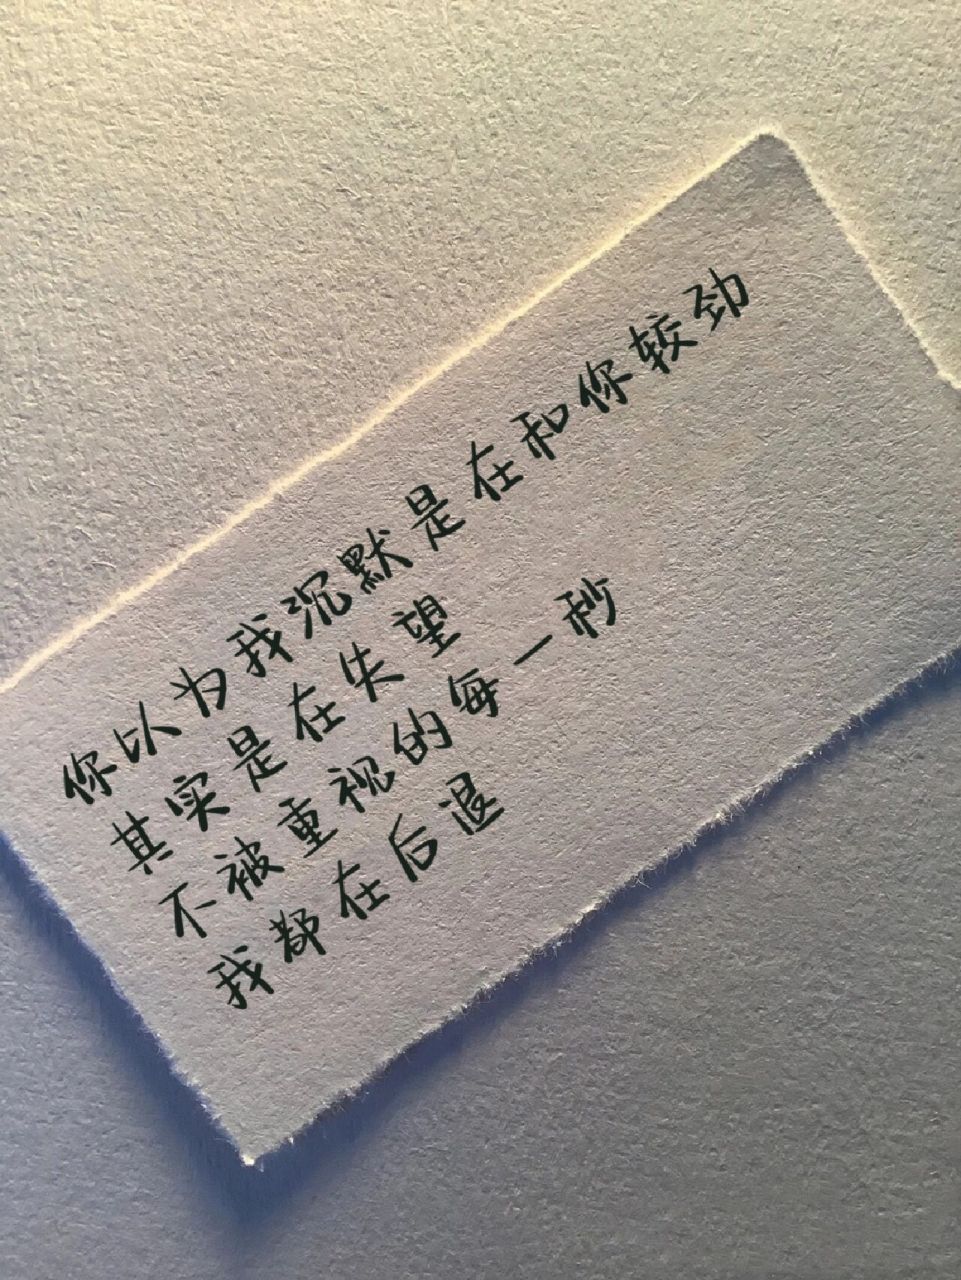 你以为我沉默是在和你较劲
其实是在失望
不被重视的每一秒
我都在后退